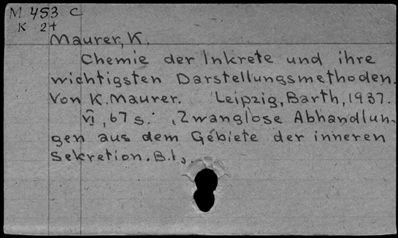 M 453 C
K 2t
Maurer, K.
Chemie der Inkrete und ihre
wichtigsten Darstellungsmethoden.
Von K. Maurer. Leipzig, Barth, 1937.
VI, 67 s. (Zwanglose Abhandlun-
gen aus dem Gebiete der inneren
Sekretion. B.1.)